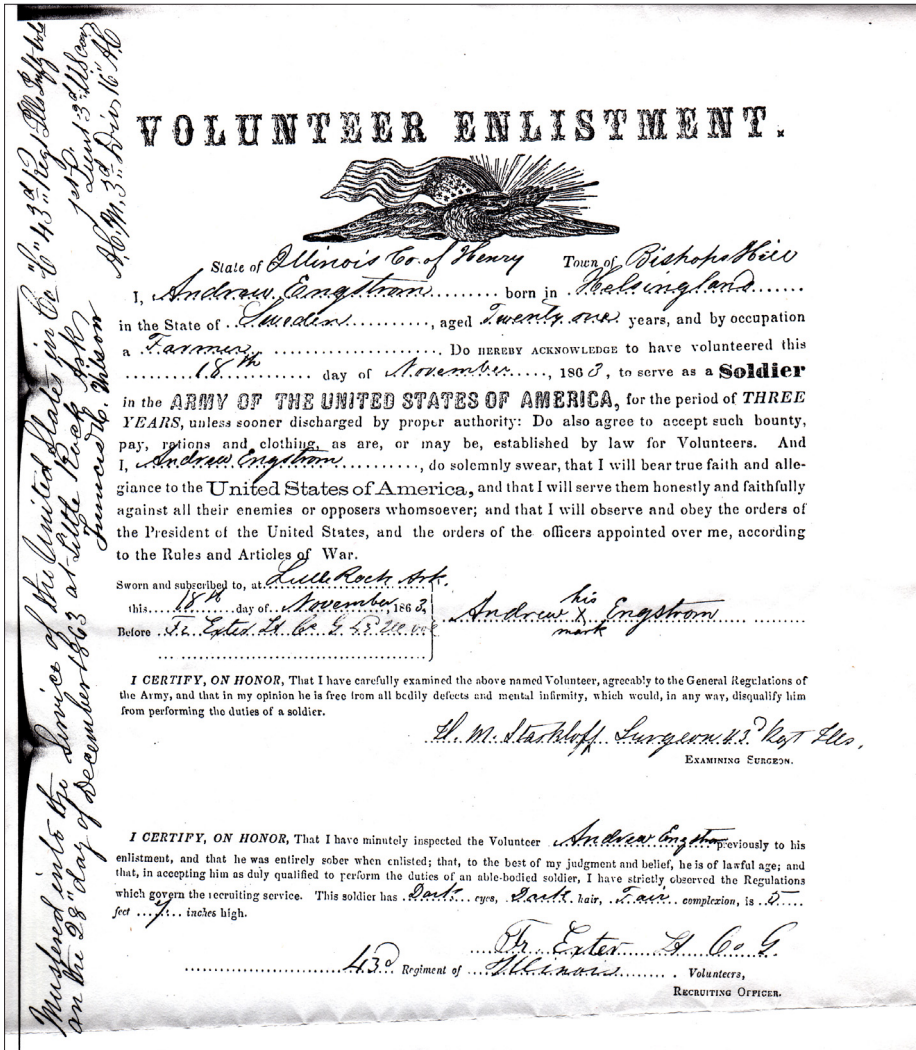 VOLUNTEER ENLISTMENT.
State of Illinois Co. of Henry Town of Bishops Hill
I, Andrew Engstrom born in Helsingland
in the State of Sweden, aged Twenty one years, and by occupation
a Farmer. Do HEREBY ACKNOWLEDGE to have volunteered this
18th day of November, 1863, to serve as a Soldier
in the ARMY OF THE UNITED STATES OF AMERICA, for the period of THREE
YEARS, unless sooner discharged by proper authority: Do also agree to accept such bounty,
pay, rations and clothing, as are, or may be, established by law for Volunteers. And
I, Andrew Engstrom, do solemnly swear, that I will bear true faith and alle-
giance to the United States of America, and that I will serve them honestly and faithfully
against all their enemies or opposers whomsoever; and that I will observe and obey the orders of
the President of the United States, and the orders of the officers appointed over me, according
to the Rules and Articles of War.
Sworn and subscribed to, at Little Rock Ark.
this 18th day of November, 1863,
Before Fr. Exter Lt Co. G 43 Ill vol
Andrew his X mark Engstrom
I CERTIFY, ON HONOR, That I have carefully examined the above named Volunteer, agreeably to the General Regulations of
the Army, and that in my opinion he is free from all bodily defects and mental infirmity, which would, in any way, disqualify him
from performing the duties of a soldier.
H. M. Starkloff Surgeon 43d Regt Ills.
EXAMINING SURGEON.
I CERTIFY, ON HONOR, That I have minutely inspected the Volunteer Andrew Engstrom previously to his
enlistment, and that he was entirely sober when enlisted; that, to the best of my judgment and belief, he is of lawful age; and
that, in accepting him as duly qualified to perform the duties of an able-bodied soldier, I have strictly observed the Regulations
which govern the recruiting service. This soldier has Dark eyes, Dark hair, Fair complexion, is 5
feet 7 inches high.
Fr Exter Lt Co G.
43d Regiment of Illinois Volunteers,
RECRUITING OFFICER.
Mustered into the Service of the United States in Co "C" 43d Regt Ills Infty vols
on the 28" day of December 1863 at Little Rock Ark,
Wilson
1st Lieut 3d
A.C.M. 3d Divis 16" A.C